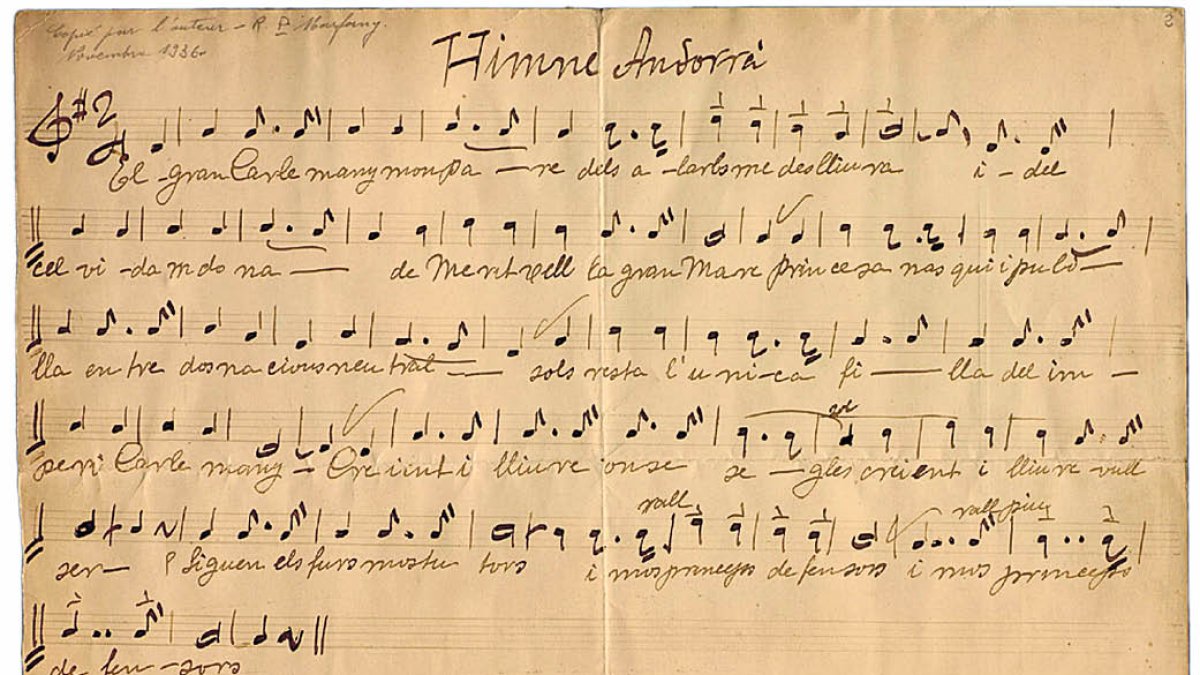 Copié par l'auteur - R. P. Marfany.
Novembre 1936
Himne Andorrà
El - gran Carlemany mon pa - re dels a - larbs me deslliura i - del
cel vi - da m do na - de Meritxell la gran Mare Princesa nasqui i pubi -
lla entre dos nacions neutral - sols resta l'u - ni - ca fi - lla del im -
peri Carle many - Creient i lliure onse se - gles creient i lliure vull
rall. rall. piu
ser - Siguen els furs mos tu tors i mos princeps defensors i mos princeps
de fen - sors